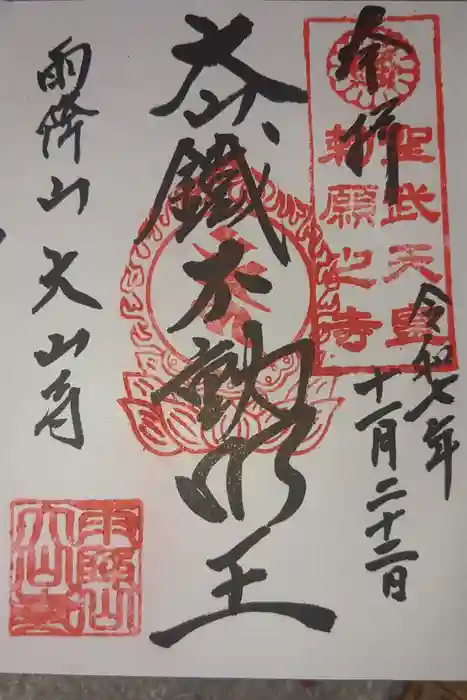 奉拝
聖武天皇
勅願之寺
令和七年
十一月二十二日
鐵不動明王
雨降山大山寺
雨降山
大山寺